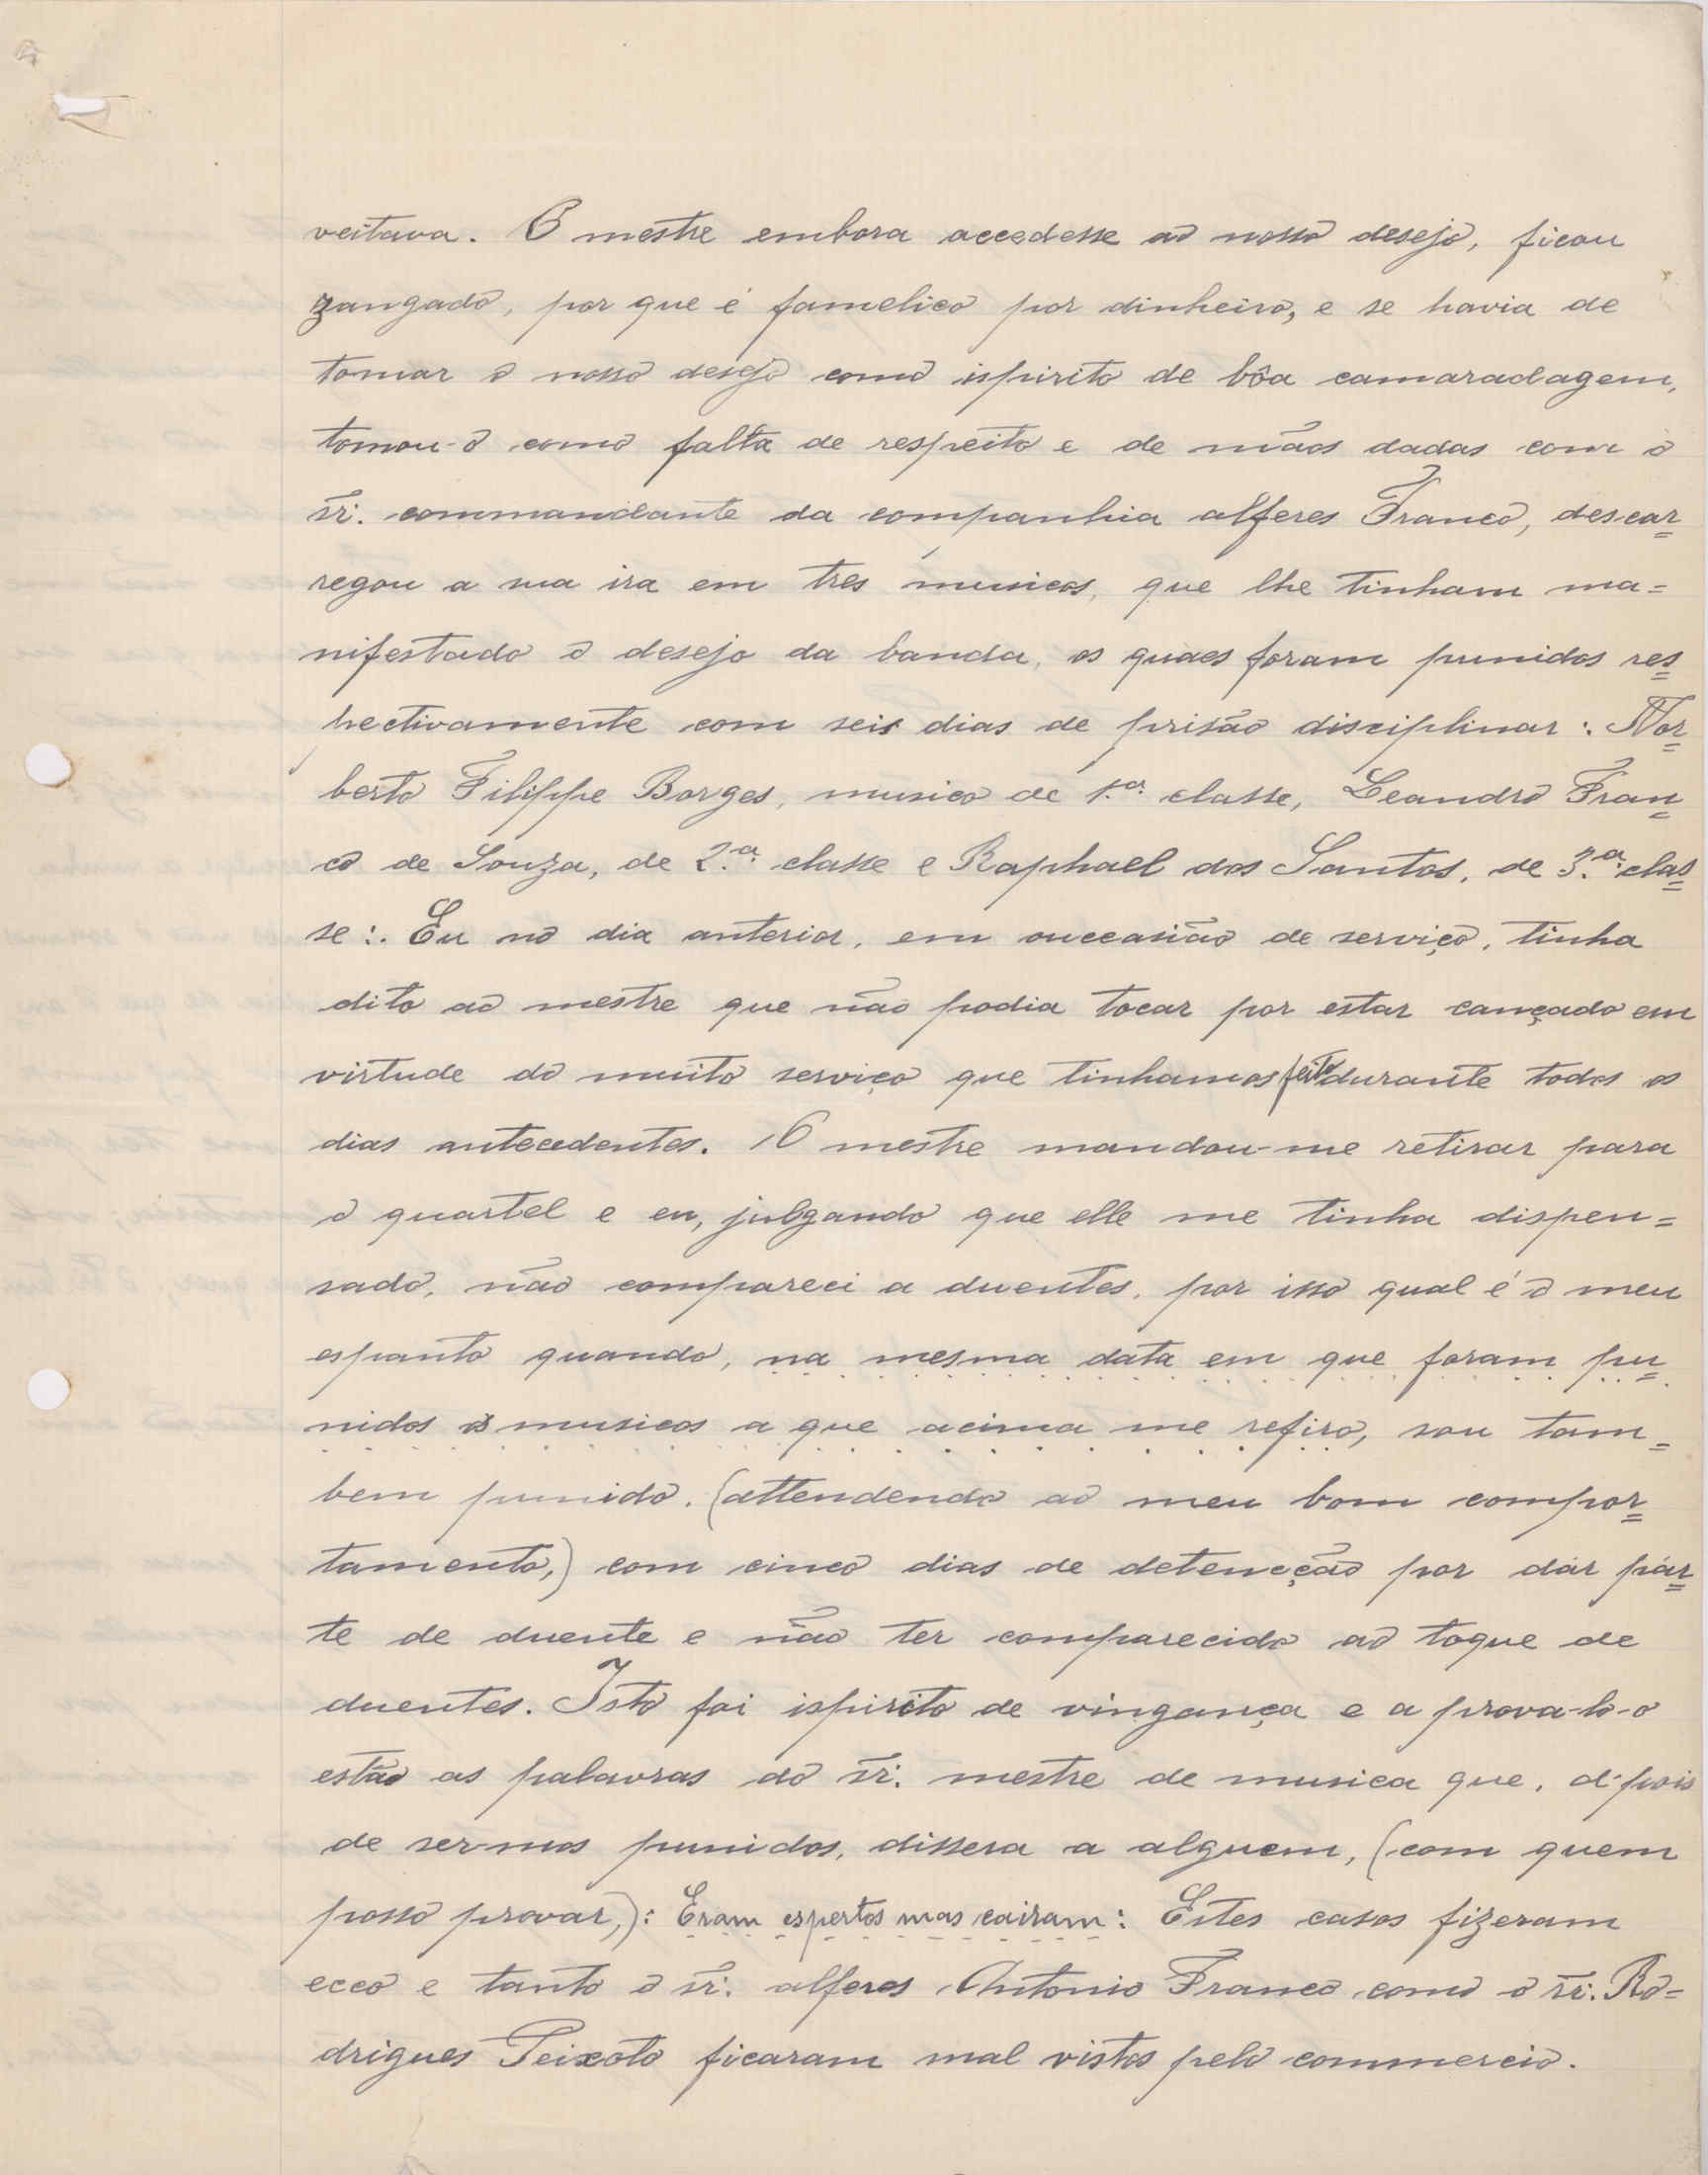 veitava. O mestre embora accedesse ao nosso desejo, ficou
zangado, por que é famelico por dinheiro, e se havia de
tomar o nosso desejo como ispirito de bôa camaradagem,
tomou-o como falta de respeito e de mãos dadas com o
sr. commandante da companhia alferes Franco, descar=
regou a sua ira em tres musicos, que lhe tinham ma=
nifestado o desejo da banda, os quaes foram punidos res=
pectivamente com seis dias de prisão disciplinar: Nor=
berto Filippe Borges, musico de 1.ª classe, Leandro Fran=
co de Souza, de 2.ª classe e Raphael dos Santos, de 3.ª clas=
se:. Eu no dia anterior, em occasião de serviço, tinha
dito ao mestre que não podia tocar por estar cançado em
virtude do muito serviço que tinhamos feito durante todos os
dias antecedentes. O mestre mandou-me retirar para
o quartel e eu, julgando que elle me tinha dispen=
sado, não compareci a duentes, por isso qual é o meu
espanto quando, na mesma data em que foram pu=
nidos os musicos a que acima me refiro, sou tam=
bem punido, (attendendo ao meu bom compor=
tamento,) com cinco dias de detencção por dár pár=
te de duente e não ter comparecido ao toque de
duentes. Isto foi ispirito de vingança e a prova-lo-o
estão as palavras do sr. mestre de musica que, depois
de sermos punidos, dissera a alguem, (com quem
posso provar,): Eram espertos mas cairam: Estes casos fizeram
ecco e tanto o sr. alferes Antonio Franco, como o sr. Ro=
drigues Peixoto ficaram mal vistos pelo commercio.